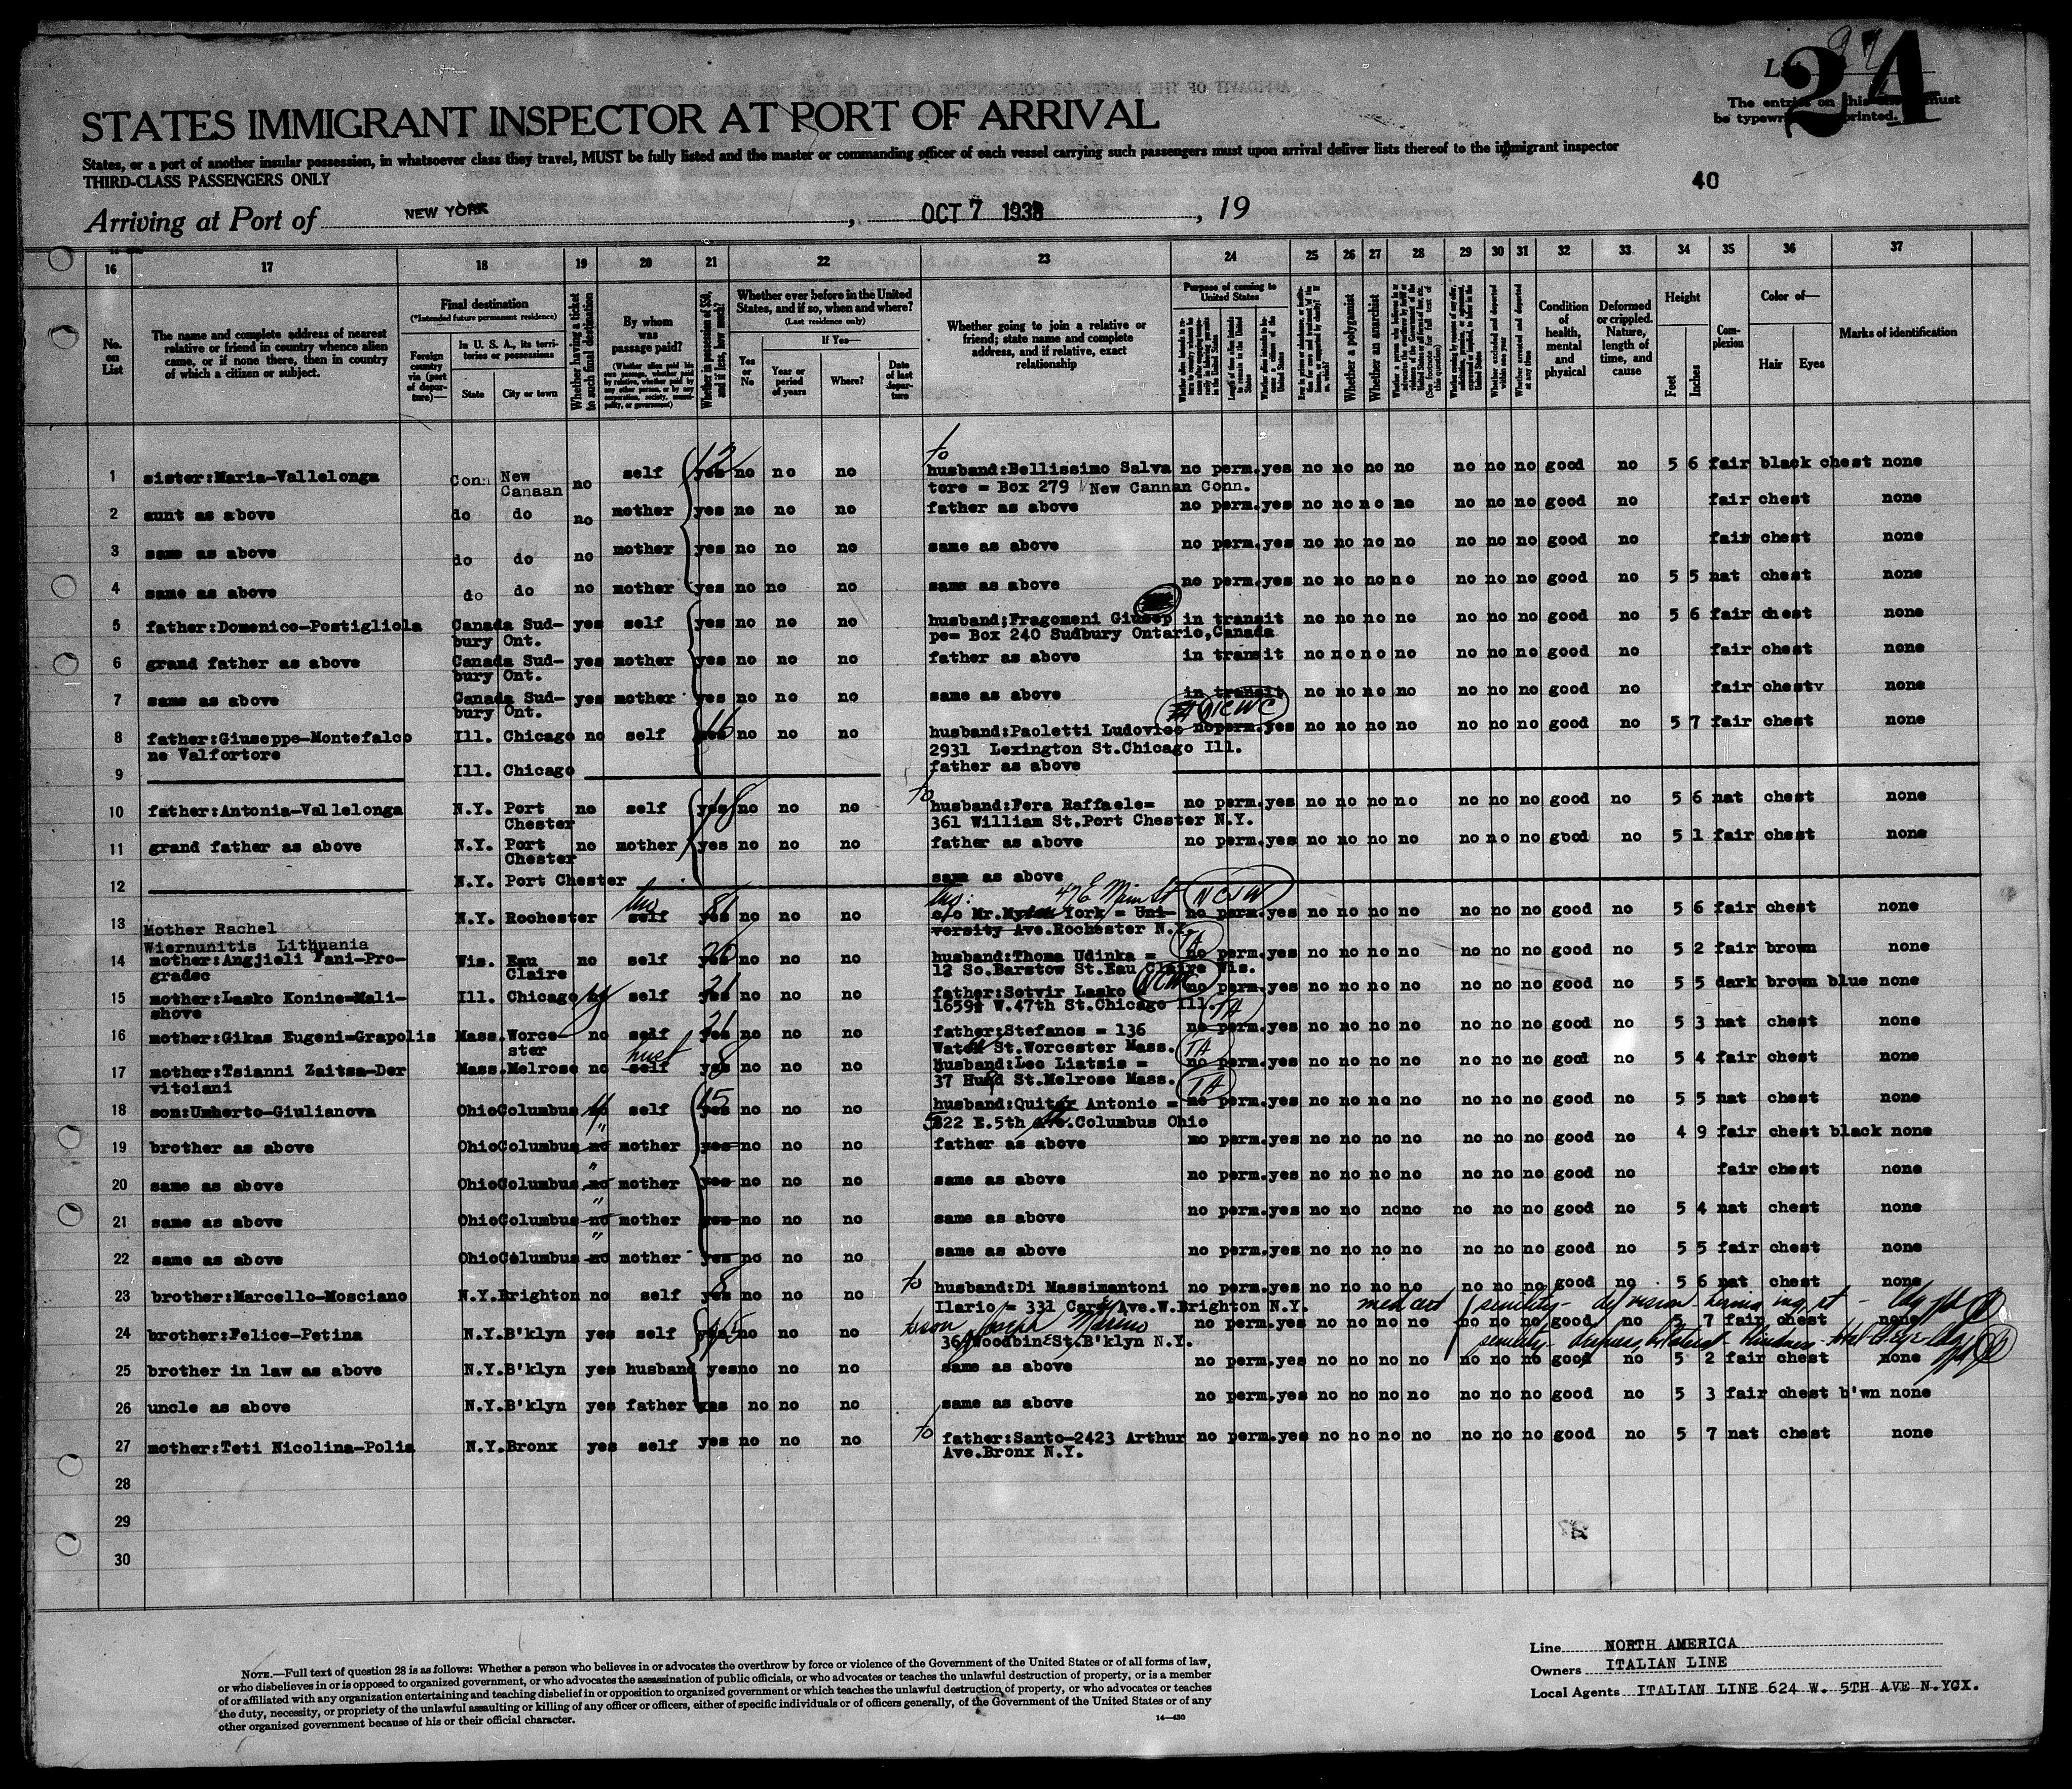 24
The entries on this must
be typewr printed.
STATES IMMIGRANT INSPECTOR AT PORT OF ARRIVAL
States, or a port of another insular possession, in whatsoever class they travel, MUST be fully listed and the master or commanding officer of each vessel carrying such passengers must upon arrival deliver lists thereof to the immigrant inspector
THIRD-CLASS PASSENGERS ONLY
40
Arriving at Port of NEW YORK, OCT 7 1938, 19
16 17 18 19 20 21 22 23 24 25 26 27 28 29 30 31 32 33 34 35 36 37
No. on List
The name and complete address of nearest relative or friend in country whence alien came, or if none there, then in country of which a citizen or subject.
Final destination
(*Intended future permanent residence)
Foreign country via (port of departure)—
In U. S. A., its territories or possessions
State
City or town
Whether having a ticket to such final destination
By whom was passage paid?
(Whether alien paid his own passage, whether paid by relative, whether paid by any other person, or by any corporation, society, municipality, or government)
Whether in possession of $50, and if less, how much?
Whether ever before in the United States, and if so, when and where?
(Last residence only)
Yes or No
If Yes—
Year or period of years
Where?
Date of last departure
Whether going to join a relative or friend; state name and complete address, and if relative, exact relationship
Purpose of coming to United States
Whether a polygamist
Whether an anarchist
Condition of health, mental and physical
Deformed or crippled. Nature, length of time, and cause
Height
Feet
Inches
Complexion
Color of—
Hair
Eyes
Marks of identification
1 sister:Maria-Vallelonga Conn New Canaan no self yes 12 no no no to husband:Bellissimo Salva no perm.yes no no no no no no no good no 5 6 fair black chest none
tore = Box 279 New Cannan Conn.
2 aunt as above do do no mother yes no no no father as above no perm.yes no no no no no no no good no fair chest none
3 same as above do do no mother yes no no no same as above no perm.yes no no no no no no no good no fair chest none
4 same as above do do no mother yes no no no same as above no perm.yes no no no no no no no good no 5 5 nat chest none
5 father:Domenico-Postigliola Canada Sud- yes self yes no no no husband;Fragomeni Giusep in transit no no no no no no no good no 5 6 fair chest none
bury Ont. pe= Box 240 Sudbury Ontario,Canada
6 grand father as above Canada Sud- yes mother yes no no no father as above in transit no no no no no no no good no fair chest none
bury Ont.
7 same as above Canada Sud- yes mother yes no no no same as above in transit no no no no no no no good no fair chestv none
bury Ont.
NCWC
8 father:Giuseppe-Montefalco Ill. Chicago no self yes 16 no no no husband:Paoletti Ludovico no perm.yes no no no no no no no good no 5 7 fair chest none
ne Valfortore 2931 Lexington St.Chicago Ill.
9 Ill. Chicago father as above
10 father:Antonia-Vallelonga N.Y. Port no self yes 18 no no no to husband:Fera Raffaele= no perm.yes no no no no no no no good no 5 6 nat chest none
Chester 361 William St.Port Chester N.Y.
11 grand father as above N.Y. Port no mother yes no no no father as above no perm.yes no no no no no no no good no 5 1 fair chest none
Chester
12 N.Y. Port Chester same as above
47 E Main St NCJW
13 N.Y. Rochester self yes no no no c/o Mr. York = Uni- no perm.yes no no no no no no no good no 5 6 fair chest none
Mother Rachel versity Ave.Rochester N.Y.
Wiernunitis Lithuania
14 mother:Angjieli Vani-Pro- Wis. Eau no self yes 20 no no no husband:Thoma Udinka = TA no perm.yes no no no no no no no good no 5 2 fair brown none
gradec Claire 12 So.Barstow St.Eau Claire Wis.
15 mother:Lasko Konine=Mali- Ill. Chicago self yes 21 no no no father:Sotvir Lasko NCWC no perm.yes no no no no no no no good no 5 5 dark brown blue none
shove 1659½ W.47th St.Chicago Ill.
16 mother:Gikas Eugeni=Grapolis Mass.Worce- no self yes 21 no no no father:Stefanos = 136 TA no perm.yes no no no no no no no good no 5 3 nat chest none
ster St.Worcester Mass.
17 mother:Tsianni Zaitsa-Der Mass.Melrose no self husb yes 8 no no no Husband:Leo Liatsis = TA no perm.yes no no no no no no no good no 5 4 fair chest none
vitciani 37 St.Melrose Mass.
18 son:Umberto-Giulianova Ohio Columbus no self yes 15 no no no husband: Antonio = TA no perm.yes no no no no no no no good no 5 5 nat chest none
22 E.5th Ave.Columbus Ohio
19 brother as above Ohio Columbus no mother yes no no no father as above no perm.yes no no no no no no no good no 4 9 fair chest black none
20 same as above Ohio Columbus no mother yes no no no same as above no perm.yes no no no no no no no good no fair chest none
21 same as above Ohio Columbus no mother yes no no no same as above no perm.yes no no no no no no no good no 5 4 nat chest none
22 same as above Ohio Columbus no mother yes no no no same as above no perm.yes no no no no no no no good no 5 5 fair chest none
23 brother:Marcello-Mosciano N.Y.Brighton no self yes 8 no no no to husband:Di Massimantoni no perm.yes no no no no no no no good no 5 6 nat chest none
Ilario = 331 Ave.W.Brighton N.Y. med cert senility - def vision hernia ing rt
24 brother:Felice-Petina N.Y.B'klyn yes self yes no no no to son Joseph Marino no perm.yes no no no no no no no good no 5 7 fair chest none
36 Woodbine St.B'klyn N.Y. senility
25 brother in law as above N.Y.B'klyn yes husband yes no no no same as above no perm.yes no no no no no no no good no 5 2 fair chest none
26 uncle as above N.Y.B'klyn yes father yes no no no same as above no perm.yes no no no no no no no good no 5 3 fair chest b'wn none
27 mother:Teti Nicolina-Polia N.Y.Bronx yes self yes no no no to father:Santo-2423 Arthur no perm.yes no no no no no no no good no 5 7 nat chest none
Ave.Bronx N.Y.
28
29
30
NOTE.—Full text of question 28 is as follows: Whether a person who believes in or advocates the overthrow by force or violence of the Government of the United States or of all forms of law,
or who disbelieves in or is opposed to organized government, or who advocates the assassination of public officials, or who advocates or teaches the unlawful destruction of property, or is a member
of or affiliated with any organization entertaining and teaching disbelief in or opposition to organized government or which teaches the unlawful destruction of property, or who advocates or teaches
the duty, necessity, or propriety of the unlawful assaulting or killing of any officer or officers, either of specific individuals or of officers generally, of the Government of the United States or of any
other organized government because of his or their official character.
14—430
Line NORTH AMERICA
Owners ITALIAN LINE
Local Agents ITALIAN LINE 624 W. 5TH AVE N.YCX.